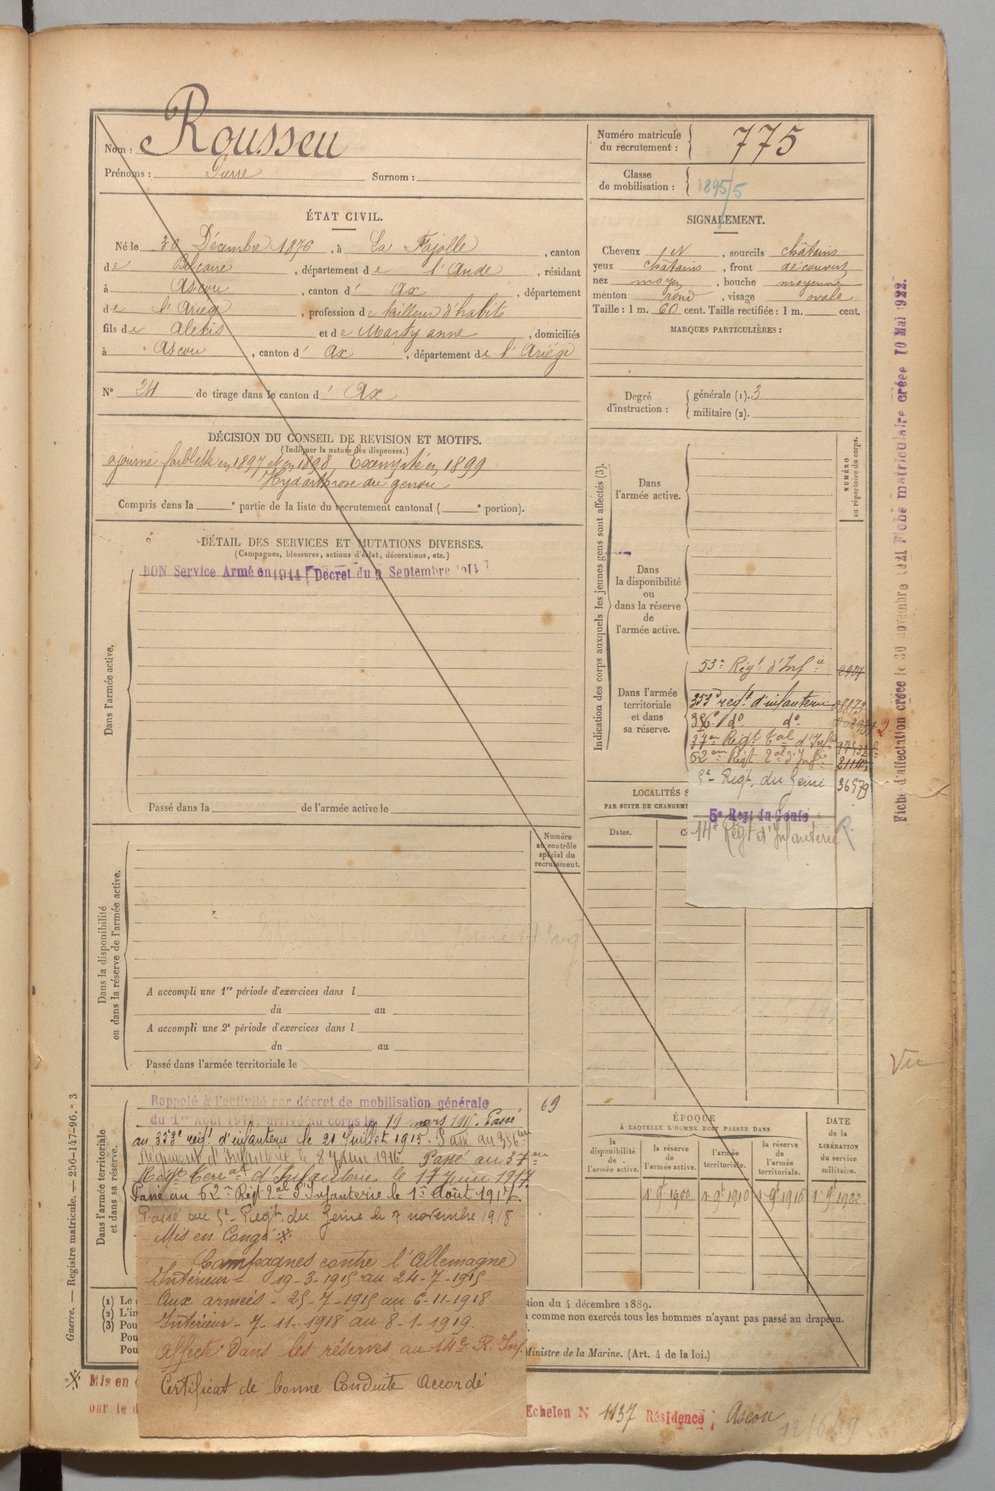 Nom : Rousseu
Prénoms : Pierre Surnom :
Numéro matricule du recrutement : 775
Classe de mobilisation : 1895/5
ÉTAT CIVIL.
Né le 30 Décembre 1876, à La Fajolle, canton
de Belcaire, département de l'Aude, résidant
à Ascou, canton d' Ax, département
de l'Ariège, profession de tailleur d'habits
fils de Alexis et de Marty anne, domiciliés
à Ascou, canton d' Ax, département de l'Ariège
N° 24 de tirage dans le canton d' Ax
SIGNALEMENT.
Cheveux , sourcils châtains
yeux châtains, front découvert
nez moyen, bouche moyenne
menton rond, visage ovale
Taille : 1 m. 60 cent. Taille rectifiée : 1 m. cent.
MARQUES PARTICULIÈRES :
Degré d'instruction : générale (1). 3
militaire (2).
DÉCISION DU CONSEIL DE REVISION ET MOTIFS.
(Indiquer la nature des dispenses.)
ajourné faiblesse en 1897 et en 1898, Exempté en 1899
Hydarthrose du genou
Compris dans la e partie de la liste du recrutement cantonal ( e portion).
DÉTAIL DES SERVICES ET MUTATIONS DIVERSES.
(Campagnes, blessures, actions d'éclat, décorations, etc.)
BON Service Armé en 1914 (Décret du 9 Septembre 1914)
Dans l'armée active.
Passé dans la de l'armée active le
Indication des corps auxquels les jeunes gens sont affectés (3).
NUMÉRO au répertoire du corps.
Dans l'armée active.
Dans la disponibilité ou dans la réserve de l'armée active.
Dans l'armée territoriale et dans sa réserve.
53e Régt d'Infie
353e regt d'infanterie
336e do do
37me Régt Eal d'Infie
62me Régt
5e Régt du Génie 36579
5e Regt du Génie
14e Régt d'Infanterie R.
LOCALITÉS
PAR SUITE DE CHANGEM
Dates.
Numéro au contrôle spécial du recrutement.
Dans la disponibilité ou dans la réserve de l'armée active.
A accompli une 1re période d'exercices dans l
du au
A accompli une 2e période d'exercices dans l
du au
Passé dans l'armée territoriale le
Dans l'armée territoriale et dans sa réserve.
Rappelé à l'activité par décret de mobilisation générale
du 1er Août 1914, arrivé au corps le 19 mars 1915. Passé
au 353e régt d'infanterie le 21 Juillet 1915. Passé au 336me
Régiment d'Infanterie le 8 Juin 1916. Passé au 37me
Régt d'Infanterie le 17 Juin 1917.
Passé au 62me Régt d'Infanterie le 1er Août 1917.
Passé au 5e Régt du Génie le 7 novembre 1918
Mis en Congé
Campagnes contre l'Allemagne
Intérieur - 19-3-1915 au 24-7-1915
Aux armées - 25-7-1915 au 6-11-1918
Intérieur - 7-11-1918 au 8-1-1919.
Affecté dans les réserves au 14e R. Inf.
Certificat de bonne Conduite accordé
69
ÉPOQUE
À LAQUELLE L'HOMME DOIT PASSER DANS
DATE de la LIBÉRATION du service militaire.
la disponibilité de l'armée active.
la réserve de l'armée active.
l'armée territoriale.
la réserve de l'armée territoriale.
1er 9bre 1900 1er 9bre 1910 1er 9bre 1916 1er 9bre 1922
(1) Le
(2) L'in
(3) Pou
Pou
Pou
tion du 4 décembre 1889.
comme non exercés tous les hommes n'ayant pas passé au drapeau.
Ministre de la Marine. (Art. 4 de la loi.)
Mis en
par le d
Echelon N 1137 Résidence ; Ascou
Guerre. — Registre matricule. — 256-147-96.* 3
Fiche d'affectation créée le 30 novembre 1921 Fiche matriculaire créée 10 Mai 1922.
Vu